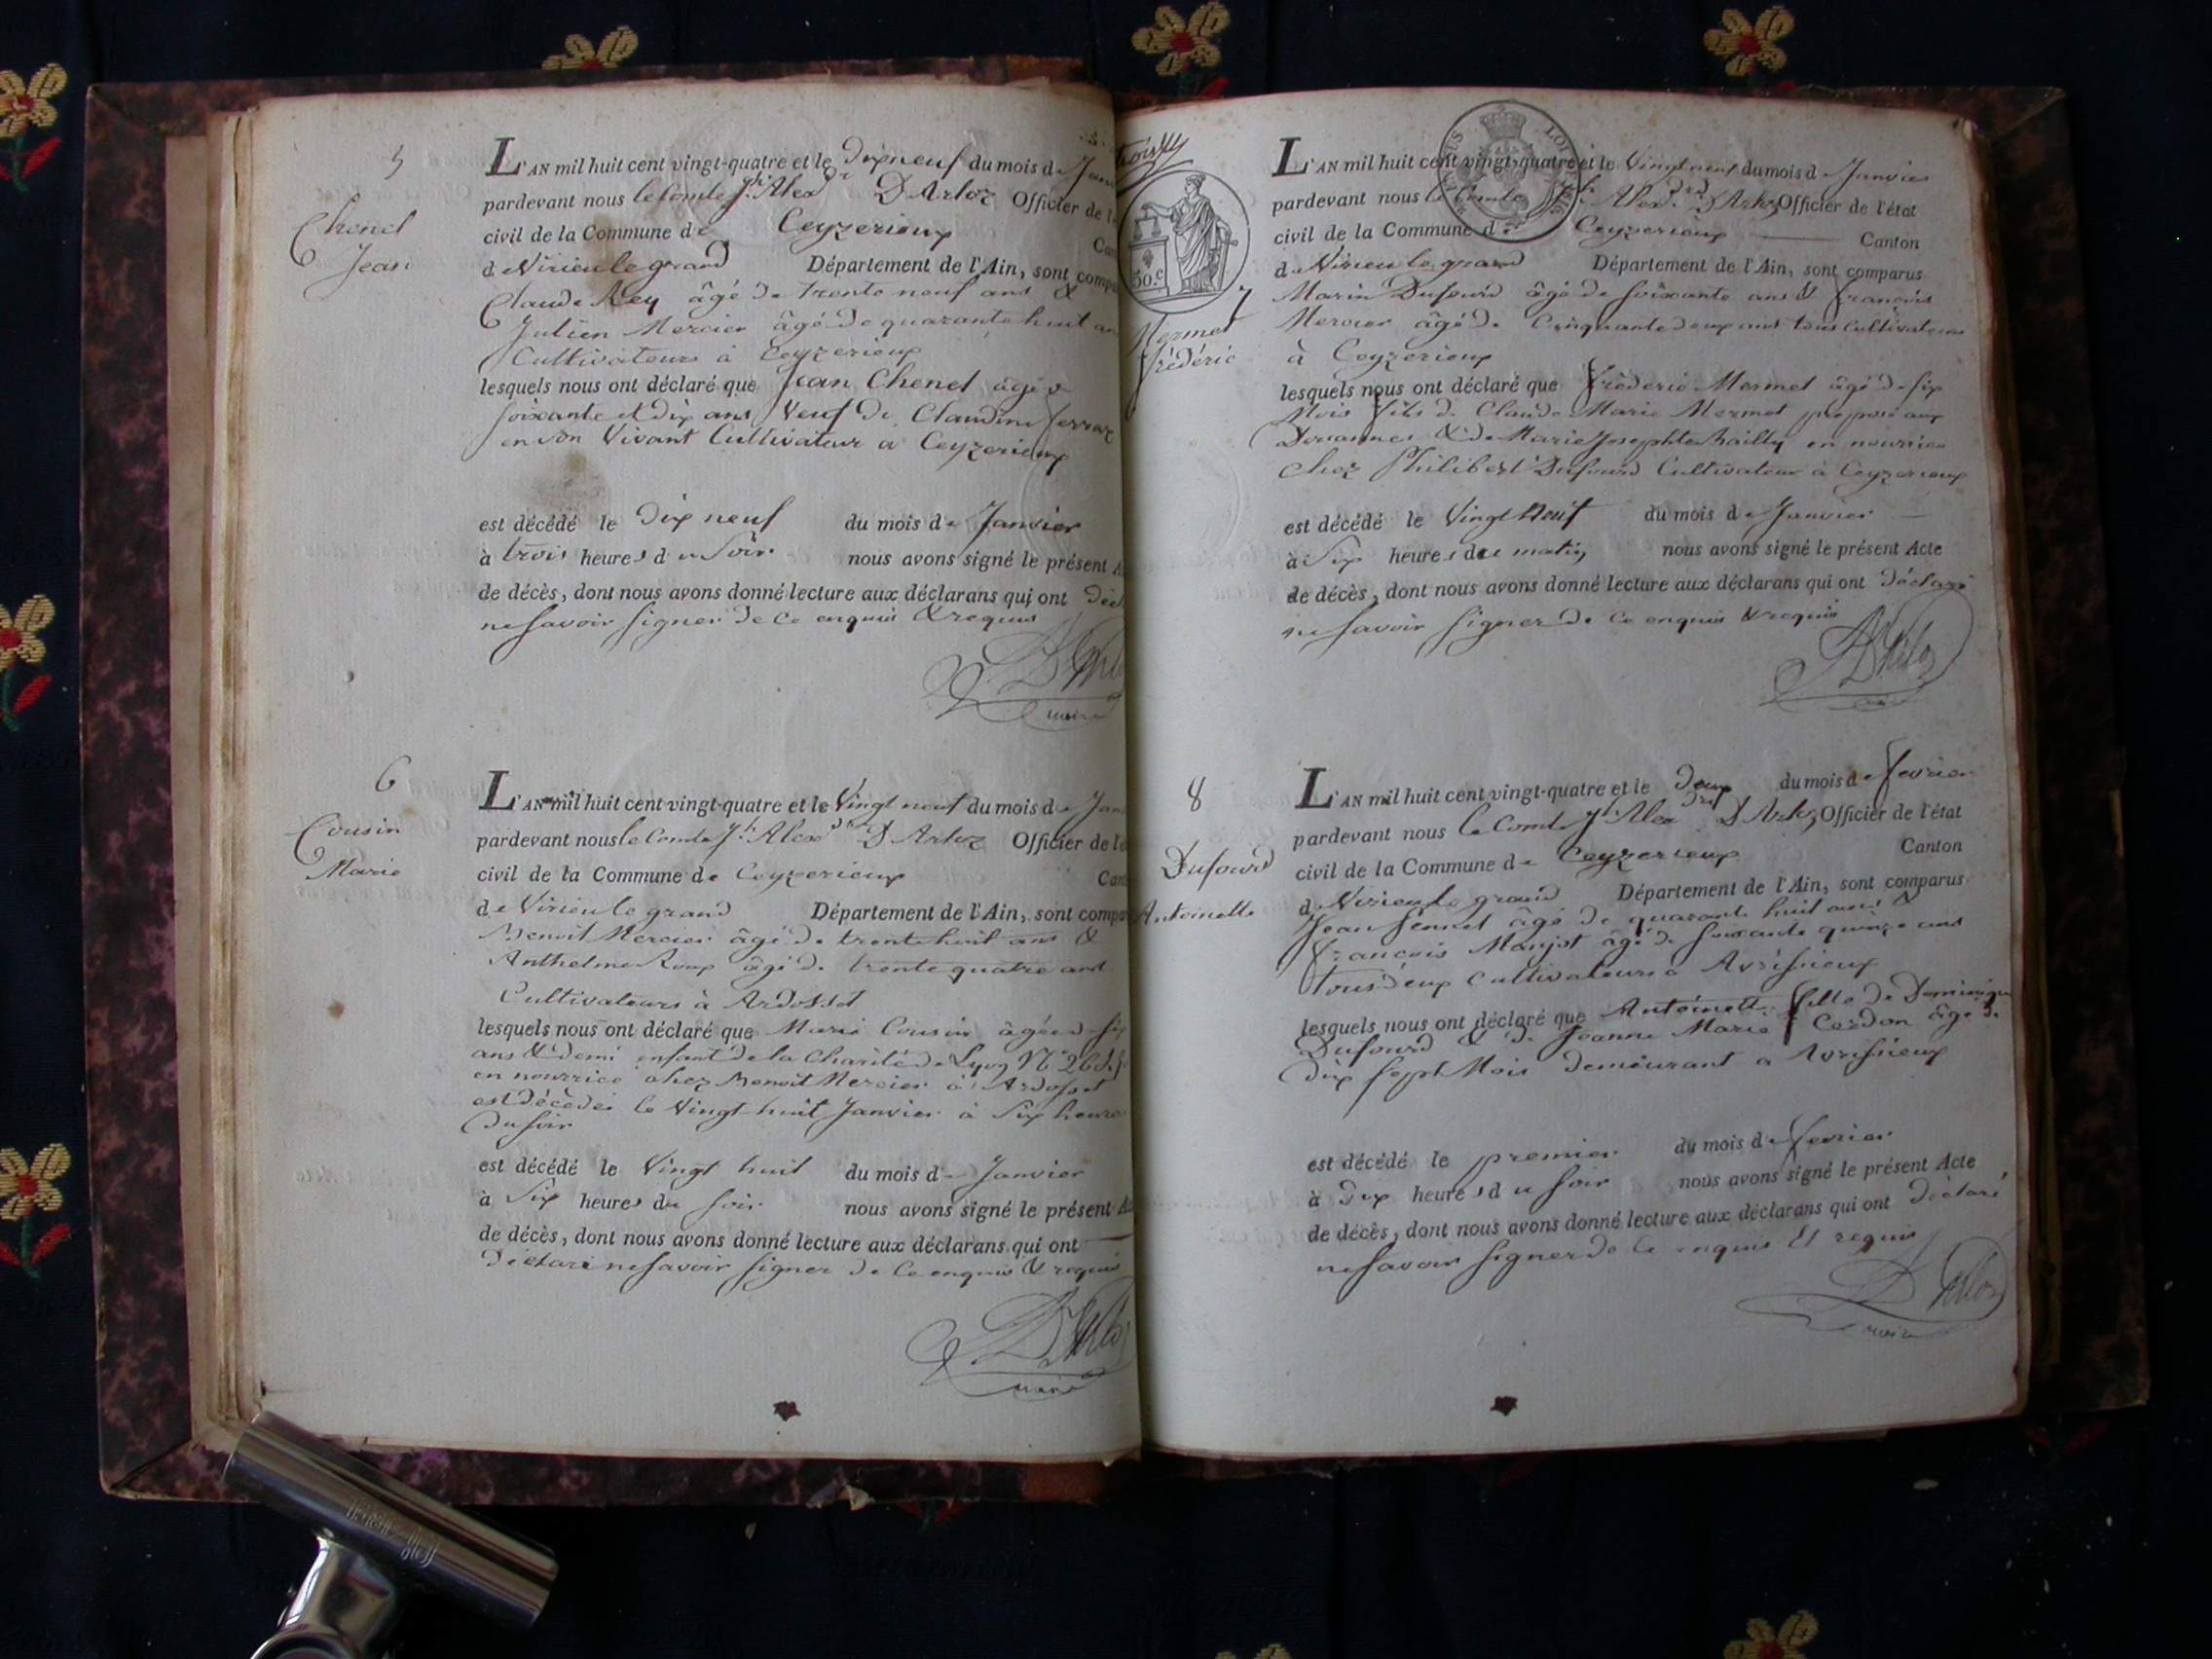 5
Chenel
Jean
L'AN mil huit cent vingt-quatre et le Dix neuf du mois de
pardevant nous le Comte Jph Alexdre D'Arloz Officier de
civil de la Commune de Ceyzerieux
de Virieu le grand Département de l'Ain, sont
Claude Rey âgé de trente neuf ans &
Julien Mercier âgé de quarante huit
Cultivateurs à Ceyzerieux
lesquels nous ont déclaré que Jean Chenel âgé de
soixante et dix ans Veuf de Claudine
en son Vivant Cultivateur a Ceyzerieux
est décédé le Dix neuf du mois de Janvier
à trois heures du Soir nous avons signé le présent
de décès, dont nous avons donné lecture aux déclarans qui ont
ne savoir signer de ce enquis & requis
maire
6
Cousin
Marie
L'AN mil huit cent vingt-quatre et le Vingt neuf du mois de
pardevant nous le Comte Jh Alexdre D'Arloz Officier de
civil de la Commune de Ceyzerieux
de Virieu le grand Département de l'Ain, sont
Benoit Mercier âgé de trente huit ans &
Anthelme Roux âgé de trente quatre ans
Cultivateurs à Ardosset
lesquels nous ont déclaré que Marie Cousin âgée de six
ans & demi enfant de la Charité de Lyon N°
en nourrice chez Benoit Mercier à Ardosset
est décédée le Vingt huit Janvier à Six heures
du soir
est décédé le Vingt huit du mois de Janvier
à Six heures du soir nous avons signé le présent
de décès, dont nous avons donné lecture aux déclarans qui ont
déclaré ne savoir signer de ce enquis & requis
maire
50.c
7
Mermet
frédéric
L'AN mil huit cent vingt-quatre et le Vingt neuf du mois de Janvier
pardevant nous le Comte Jh Alexdre D'Arloz Officier de l'état
civil de la Commune de Ceyzerieux Canton
de Virieu le grand Département de l'Ain, sont comparus
Marin Dufourd âgé de soixante ans & françois
Mercier âgé de Cinquante deux ans tous cultivateurs
à Ceyzerieux
lesquels nous ont déclaré que frédéric Mermet âgé de six
Mois fils de Claude Marie Mermet préposé aux
Douannes & de Marie Josephte Railly en nourrice
chez Philibert Dufourd Cultivateur à Ceyzerieux
est décédé le Vingt Neuf du mois de Janvier
à Six heures du matin nous avons signé le présent Acte
de décès, dont nous avons donné lecture aux déclarans qui ont déclaré
ne savoir signer de ce enquis & requis
8
Dufourd
Antoinette
L'AN mil huit cent vingt-quatre et le deux du mois de fevrier
pardevant nous le Comte Jh Alexdre D'Arloz Officier de l'état
civil de la Commune de Ceyzerieux Canton
de Virieu le grand Département de l'Ain, sont comparus
Jean âgé de quarante huit ans &
françois âgé de soixante quinze ans
tous deux cultivateurs à Avrissieux
lesquels nous ont déclaré que Antoinette fille de Dominique
Dufourd & de Jeanne Marie Cerdon âgé de
dix sept Mois demeurant a Avrissieux
est décédé le premier du mois de fevrier
à Dix heures du soir nous avons signé le présent Acte
de décès, dont nous avons donné lecture aux déclarans qui ont déclaré
ne savoir signer de ce enquis Et requis
maire